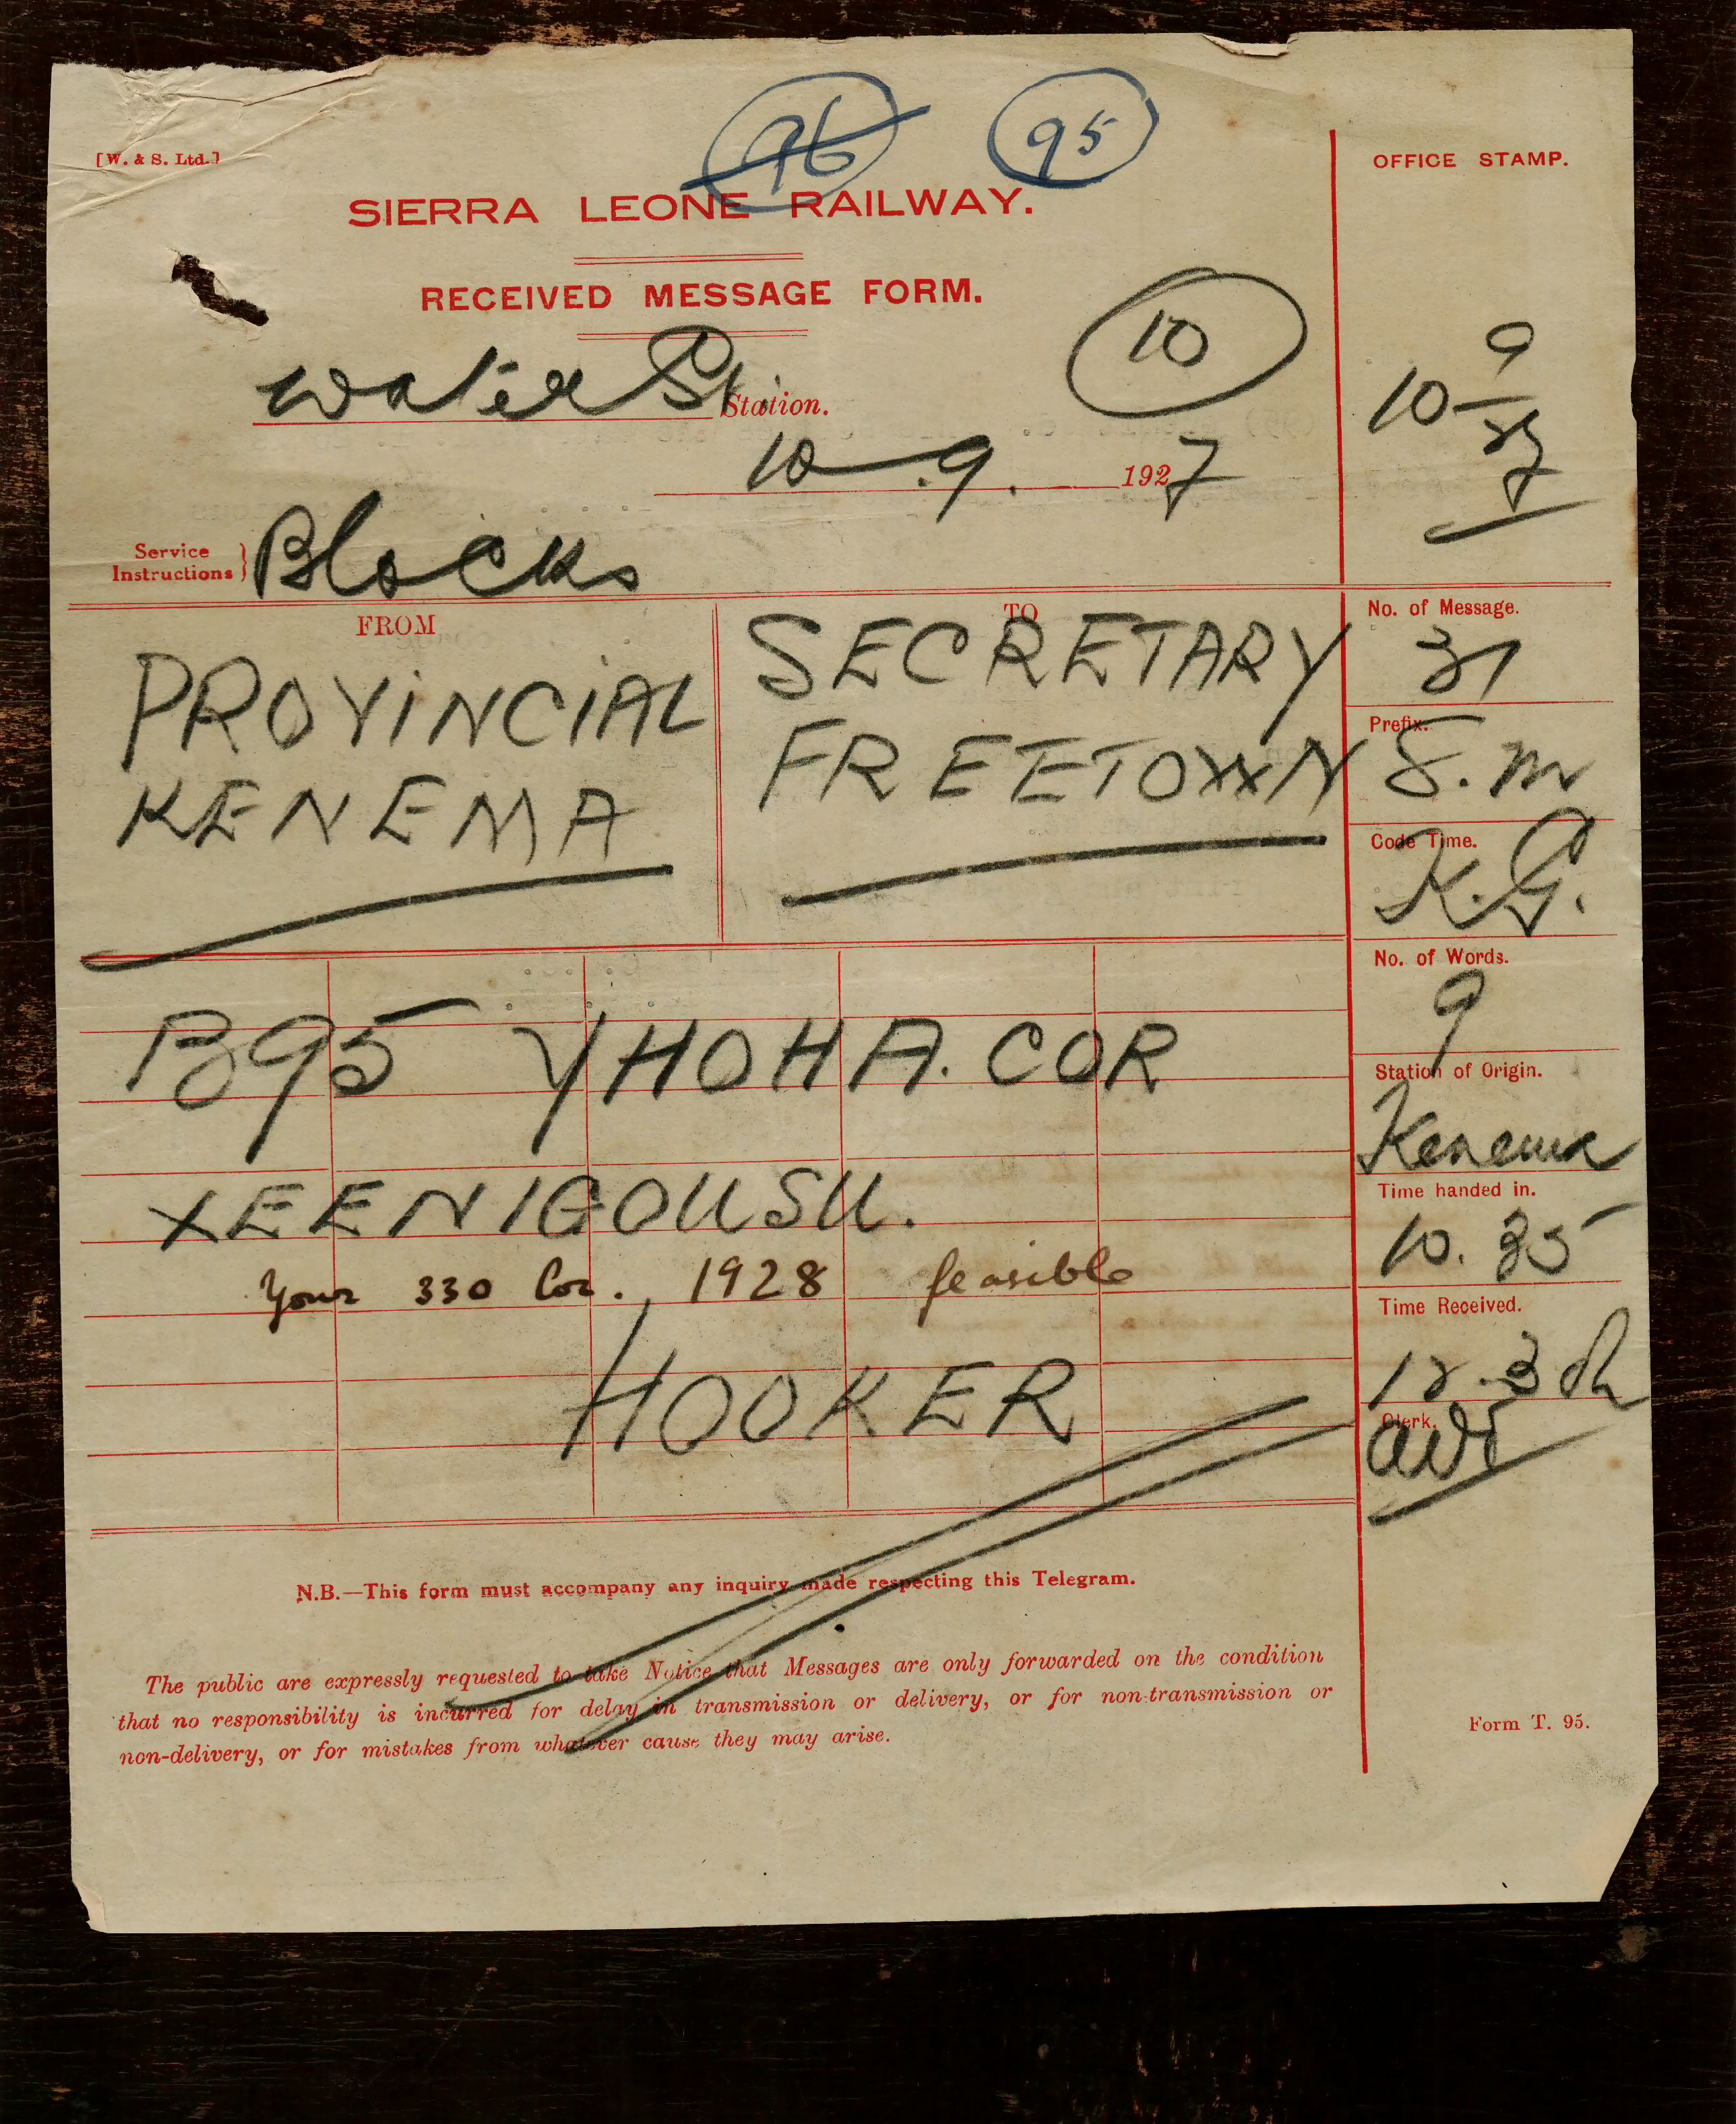 96 95
[W. & S. Ltd.]
OFFICE STAMP.
SIERRA LEONE RAILWAY.
RECEIVED MESSAGE FORM.
10
Water St. Station.
10 9/27
10-9. 1927
Service Instructions } Blocks
FROM
PROVINCIAL
KENEMA
TO
SECRETARY
FREETOWN
No. of Message.
31
Prefix.
S.M
Code Time.
K.G.
No. of Words.
9
Station of Origin.
Kenema
Time handed in.
10.35
Time Received.
Clerk.
B95 YHOHA. COR
XEENIGOUSU.
Your 330 Cor. 1928 feasible
HOOKER
N.B.—This form must accompany any inquiry made respecting this Telegram.
The public are expressly requested to take Notice that Messages are only forwarded on the condition
that no responsibility is incurred for delay in transmission or delivery, or for non-transmission or
non-delivery, or for mistakes from whatever cause they may arise.
Form T. 95.